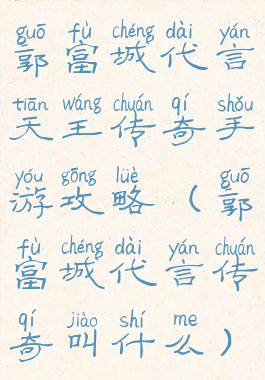 guō fù chéng dài yán
郭富城代言
tiān wáng chuán qí shǒu
天王传奇手
yóu gōng lüè guō
游攻略（郭
fù chéng dài yán chuán
富城代言传
qí jiào shí me
奇叫什么）